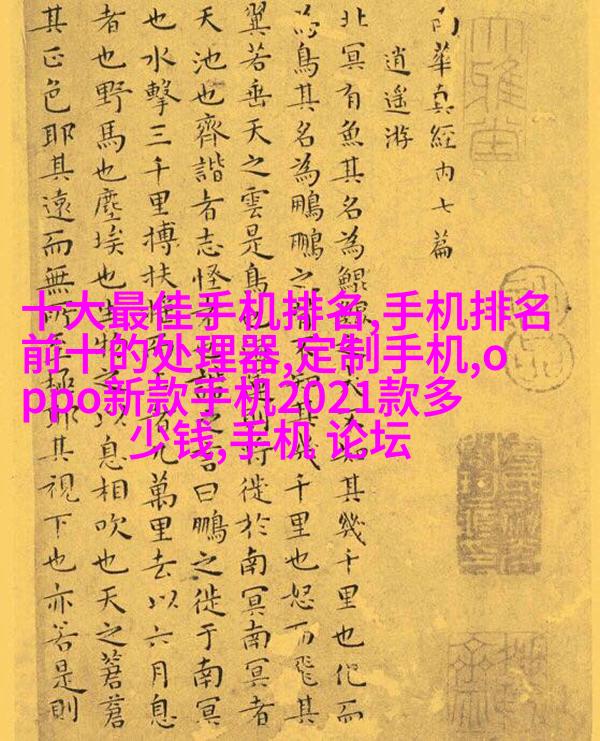 南華真經内七篇
逍遥游
北冥有魚其名為鯤大不知其幾千里也化而
為鳥其名為鵬鵬之背不知其幾千里也怒而飛其
翼若垂天之雲是鳥也則將徙於南冥南冥者
天池也齊諧者志怪者也諧之言曰鵬之徙于南冥
也水擊三千里摶扶搖而上者九萬里去以六月息
者也野馬也塵埃也生物之以息相吹也天之蒼蒼
其正色耶其遠而無所至極耶其視下也亦若是則
十大最佳手机排名,手机排名
前十的处理器,定制手机,o
ppo新款手机2021款多
少钱,手机 论坛